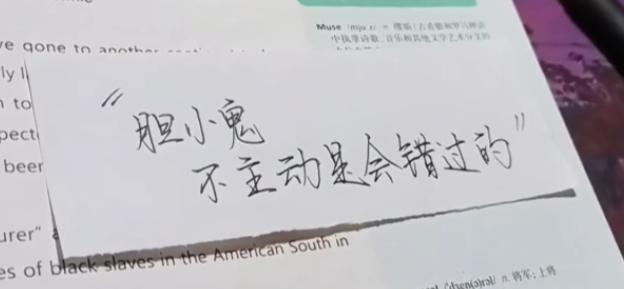 Muse /mjuːz/ n. 缪斯(古希腊和罗马神话
中执掌诗歌、音乐和其他文学艺术分支的
've gone to another
ly l
n to
pect
been
urer"
es of black slaves in the American South in
“胆小鬼
不主动是会错过的”
n. 将军;上将